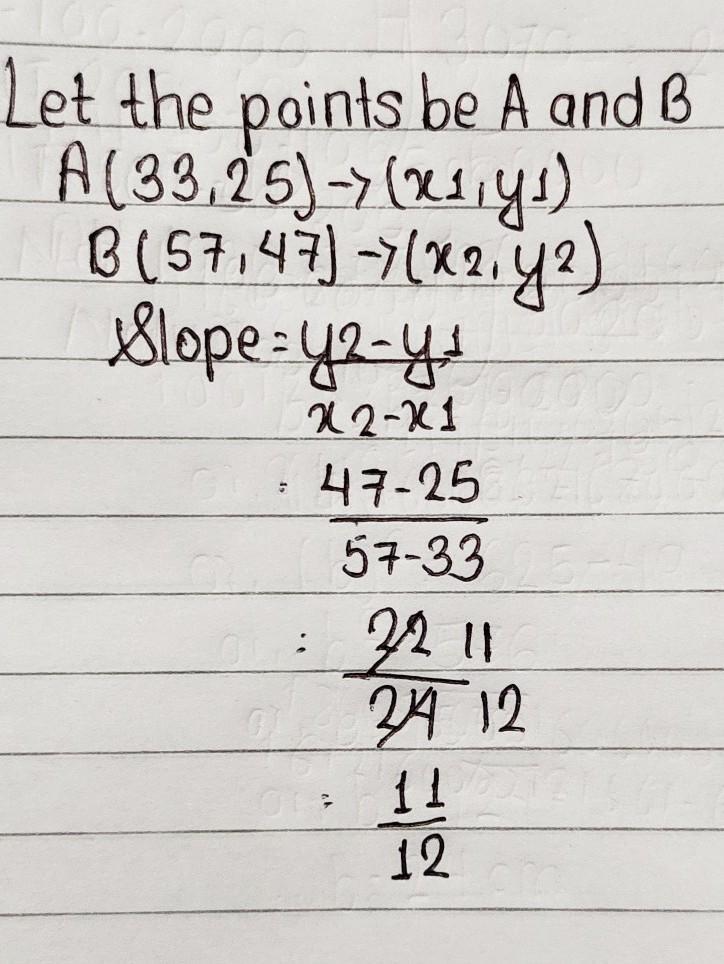 Let the points be A and B
A(33,25)->(x1,y1)
B(57,47)->(x2,y2)
Slope=y2-y1
x2-x1
: 47-25
57-33
: 22 11
24 12
: 11
12